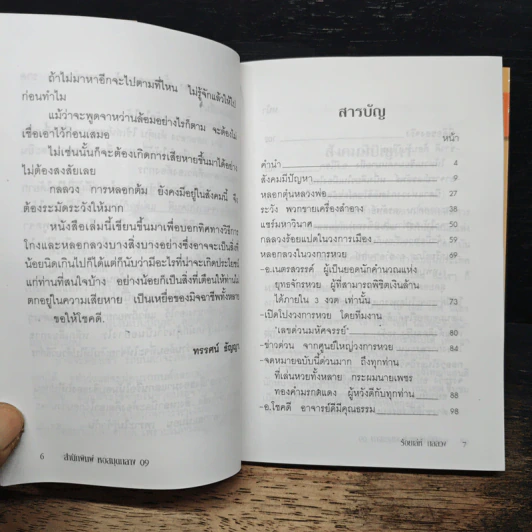 ถ้าไม่มาหาอีกจะไปตามที่ไหน ไม่รู้จักแล้วให้ไป
ก่อนทำไม
แม้ว่าจะพูดจาหว่านล้อมอย่างไรก็ตาม จะต้องไม่
เชื่อเอาไว้ก่อนเสมอ
ไม่เช่นนั้นก็จะต้องเกิดการเสียหายขึ้นมาได้อย่าง
ไม่ต้องสงสัยเลย
กลลวง การหลอกต้ม ยังคงมีอยู่ในสังคมนี้ จึง
ต้องระมัดระวังให้มาก
หนังสือเล่มนี้เขียนขึ้นมาเพื่อบอกทิศทางวิธีการ
โกงและหลอกลวงบางสิ่งบางอย่างซึ่งอาจจะเป็นสิ่งที่
น้อยนิดเกินไปก็ได้แต่ก็นับว่ามีอะไรที่น่าจะเกิดประโยชน์
แก่ท่านที่สนใจบ้าง อย่างน้อยก็เป็นสิ่งที่เตือนให้ท่านไม่
ตกอยู่ในความเสียหาย เป็นเหยื่อของมิจฉาชีพทั้งหลาย
ขอให้โชคดี.
ทรรศน์ ธัญญา
6 สำนักพิมพ์ 09
สารบัญ
หน้า
คำนำ 4
สังคมมีปัญหา 9
หลอกตุ๋นหลวงพ่อ 27
ระวัง พวกขายเครื่องสำอาง 38
แชร์มหาวินาศ 50
กลลวงร้อยแปดในวงการเมือง 59
หลอกลวงในวงการหวย 69
-อ.เนตรสวรรค์ ผู้เป็นยอดนักคำนวณแห่ง
ยุทธจักรหวย ผู้ที่สามารถพิชิตเงินล้าน
ได้ภายใน 3 งวด เท่านั้น 73
-เปิดโปงวงการหวย โดยทีมงาน
"เลขด่วนมหัศจรรย์" 80
-ข่าวด่วน จากศูนย์ใหญ่วงการหวย 84
-จดหมายฉบับนี้ด่วนมาก ถึงทุกท่าน
ที่เล่นหวยทั้งหลาย กระผมนายเพชร
ทองคำมรกตแดง ผู้หวังดีกับทุกท่าน 88
-อ.โชคดี อาจารย์ดีมีคุณธรรม 98
ร้อยเล่ห์ กลลวง 7